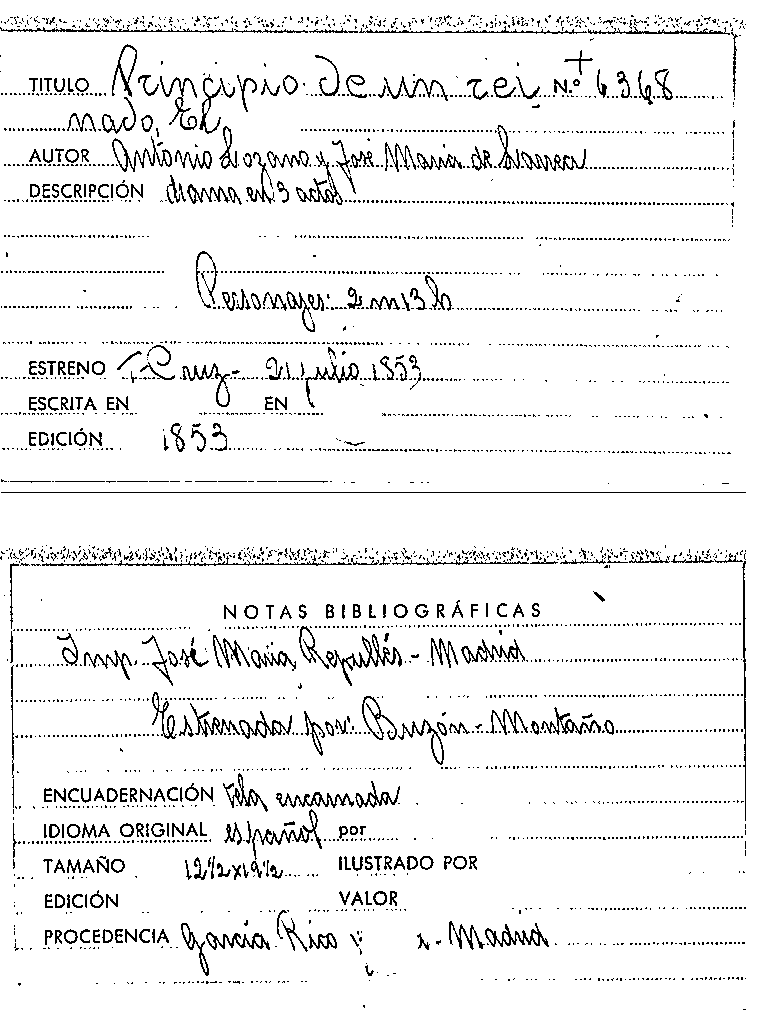 TITULO Principio de un rei N.º 6368
nado, El
AUTOR Antonio Lozano y José María de Larrea
DESCRIPCIÓN drama en 3 actos
Personajes: 2 m 13 h
ESTRENO T. Cruz - 21 julio 1853
ESCRITA EN EN
EDICIÓN 1853
NOTAS BIBLIOGRÁFICAS
Imp. José María Repullés - Madrid
Estrenada por: Buzón - Montaño
ENCUADERNACIÓN tela encarnada
IDIOMA ORIGINAL español por
TAMAÑO 12½x19½ ILUSTRADO POR
EDICIÓN VALOR
PROCEDENCIA García Rico - Madrid